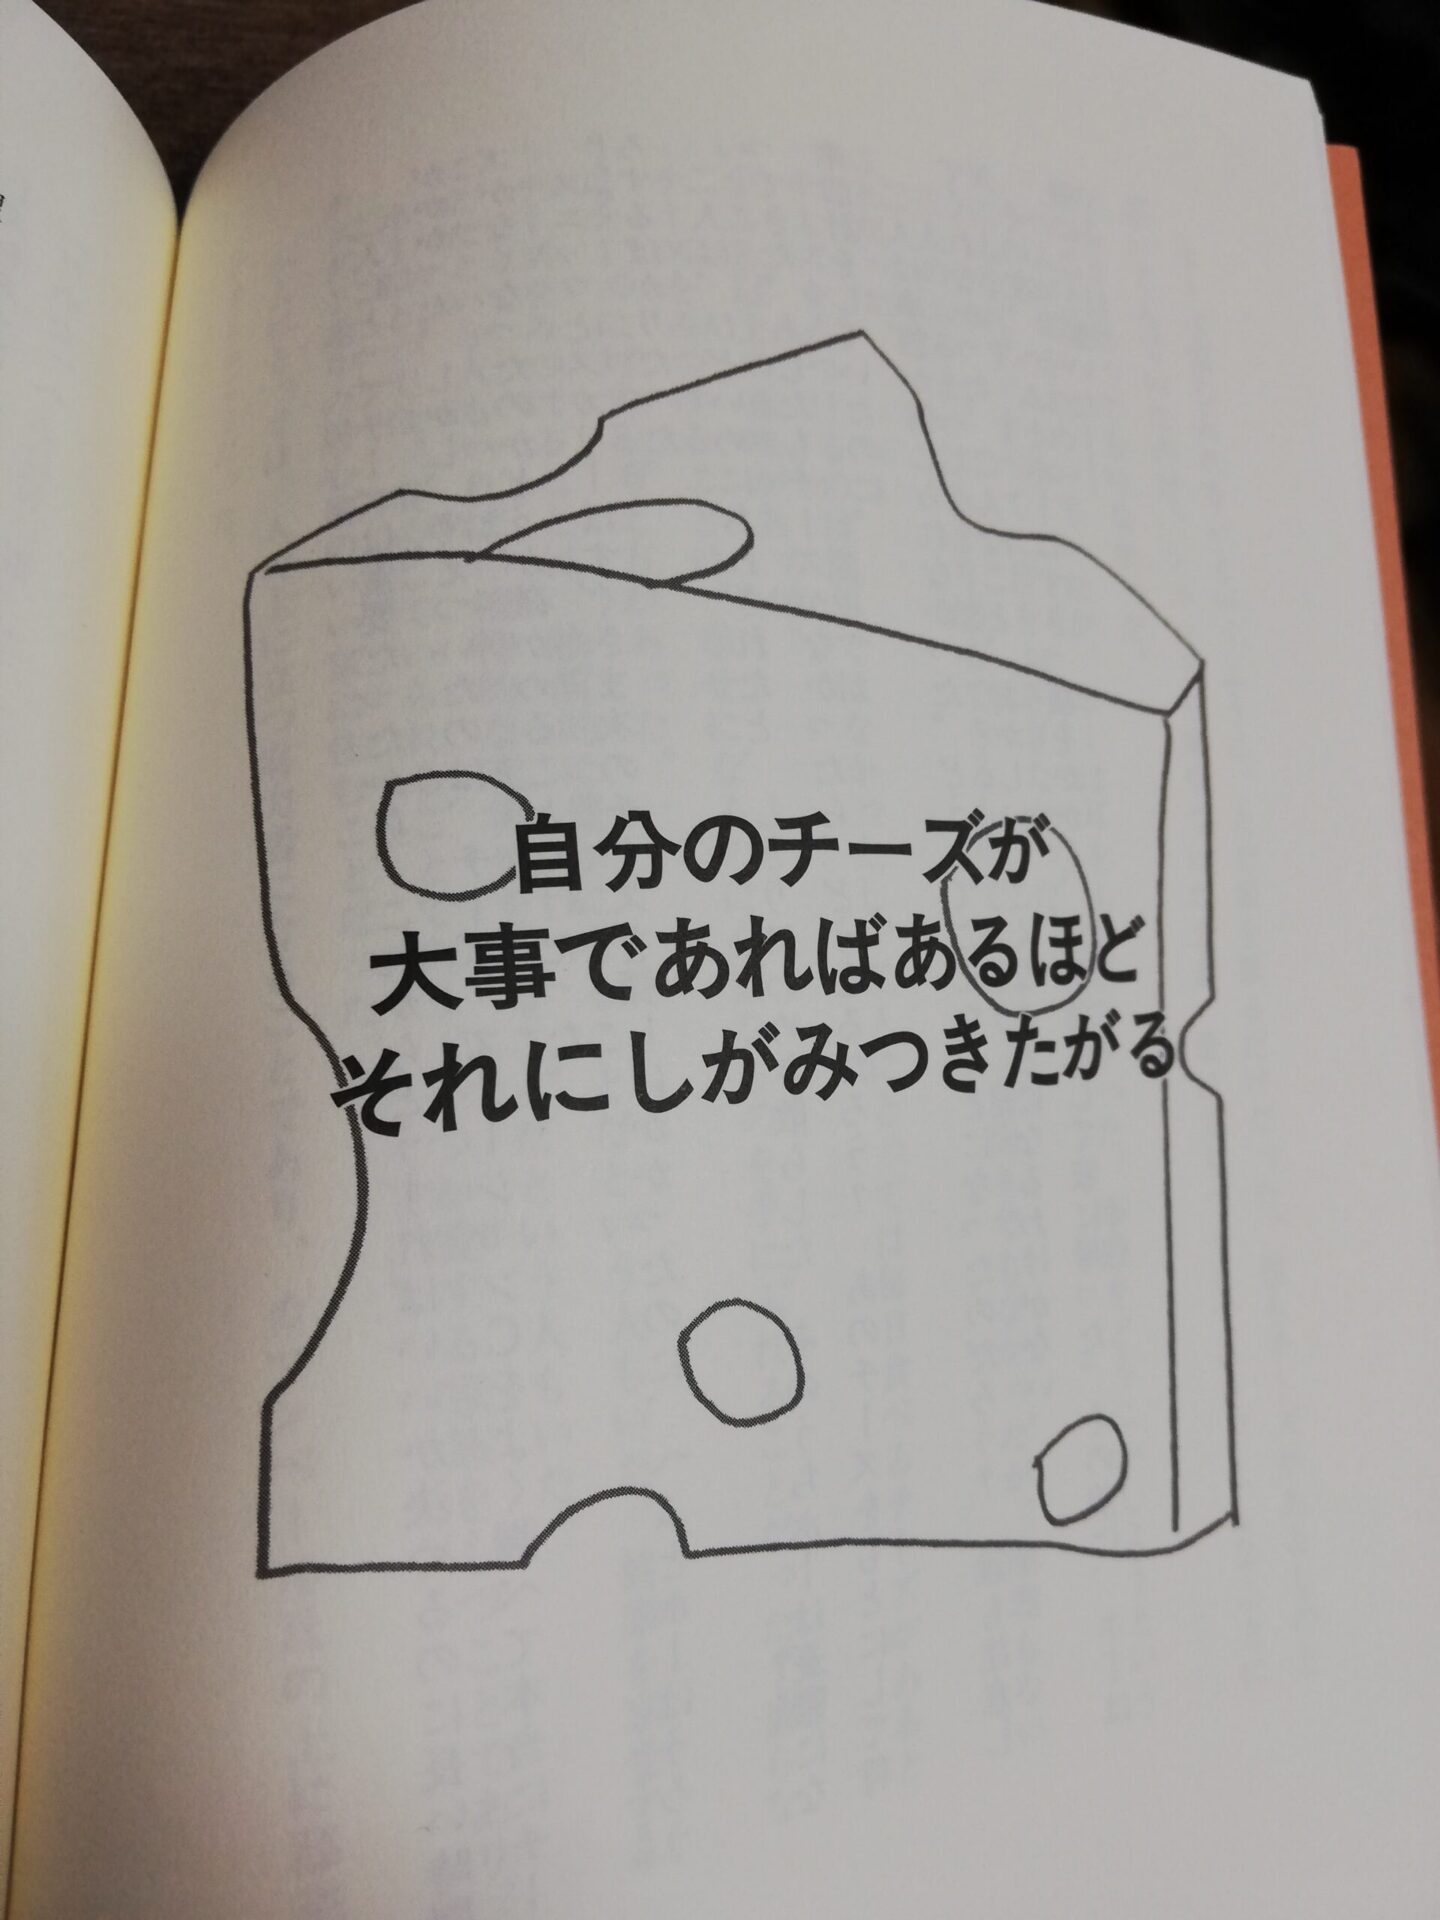 自分のチーズが
大事であればあるほど
それにしがみつきたがる